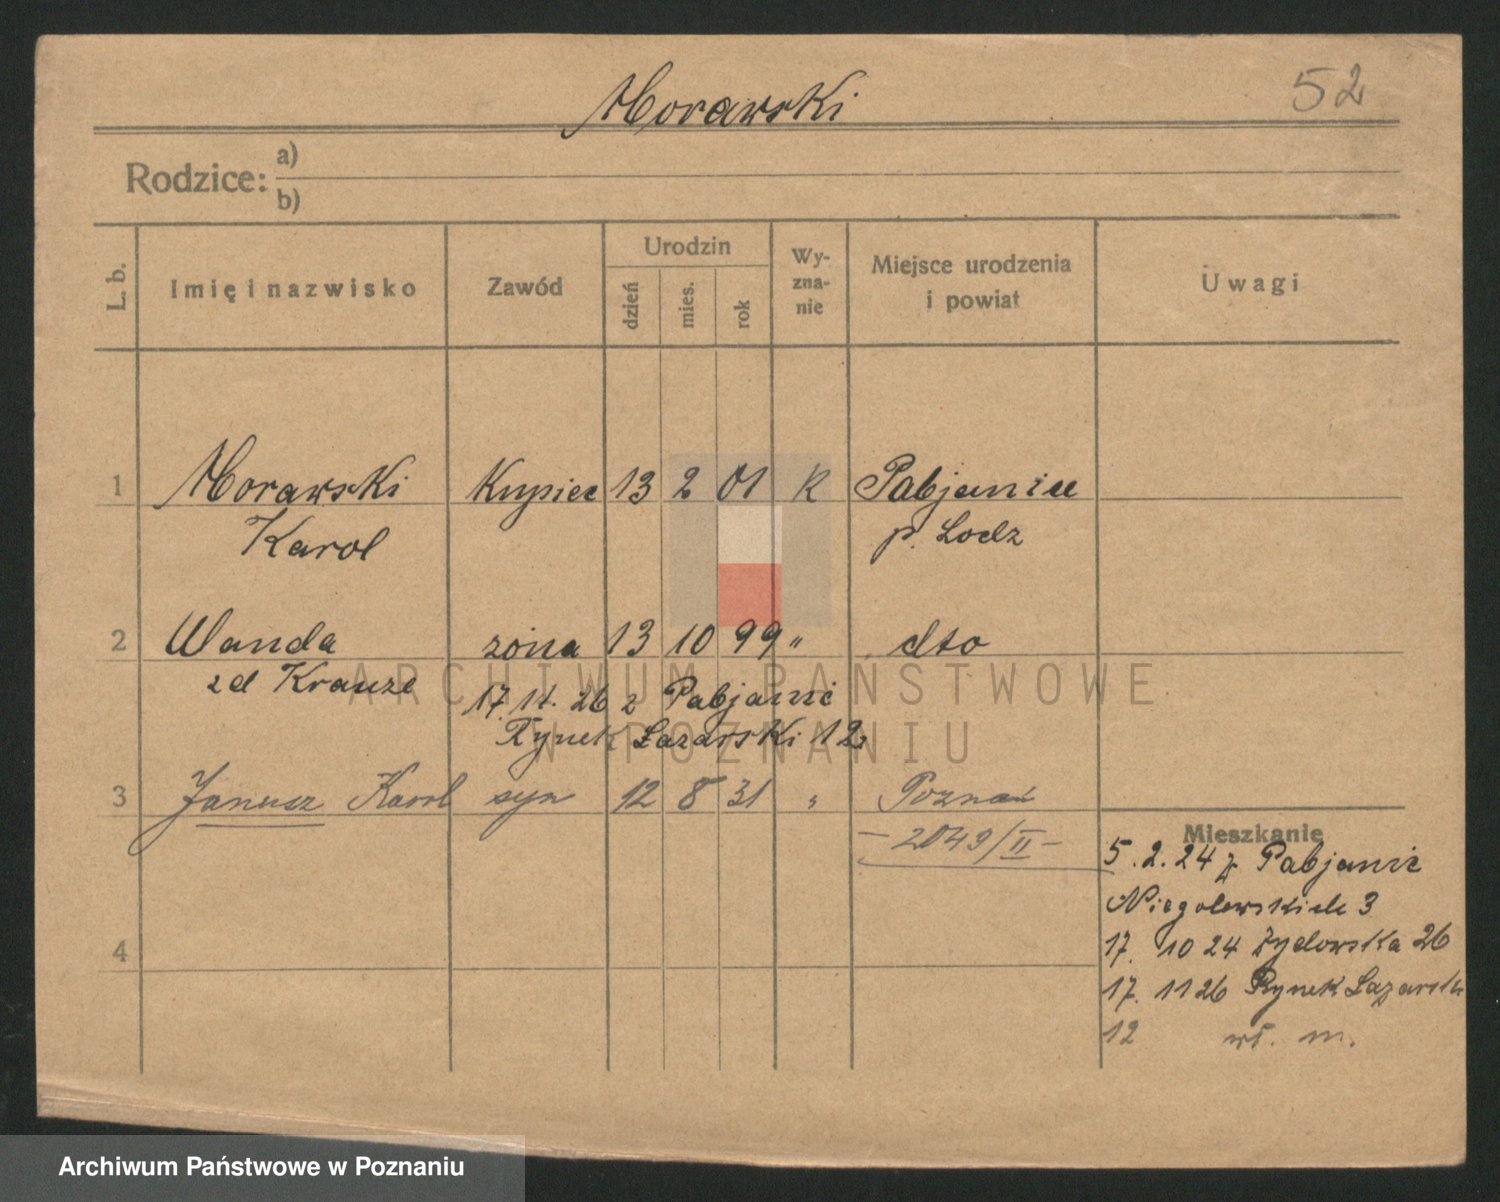 Morawski
52
Rodzice: a)
b)
L. b.
Imię i nazwisko
Zawód
Urodzin
dzień
mies.
rok
Wy-
zna-
nie
Miejsce urodzenia
i powiat
Uwagi
1 Morawski Kupiec 13 2 01 R Pabjanice
Karol p. Lodz
2 Wanda żona 13 10 99 " dto
zd Krauze
17. 11. 26 z Pabjanic
Rynek Łazarski 12
3 Janusz Karol syn 12 8 31 " Poznań
— 2049/II —
4
Mieszkanie
5. 2. 24 z Pabjanic
Niegolewskich 3
17. 10 24 Żydowska 26
17. 11 26 Rynek Łazarski
12 wł. m.
ARCHIWUM PAŃSTWOWE
W POZNANIU
Archiwum Państwowe w Poznaniu